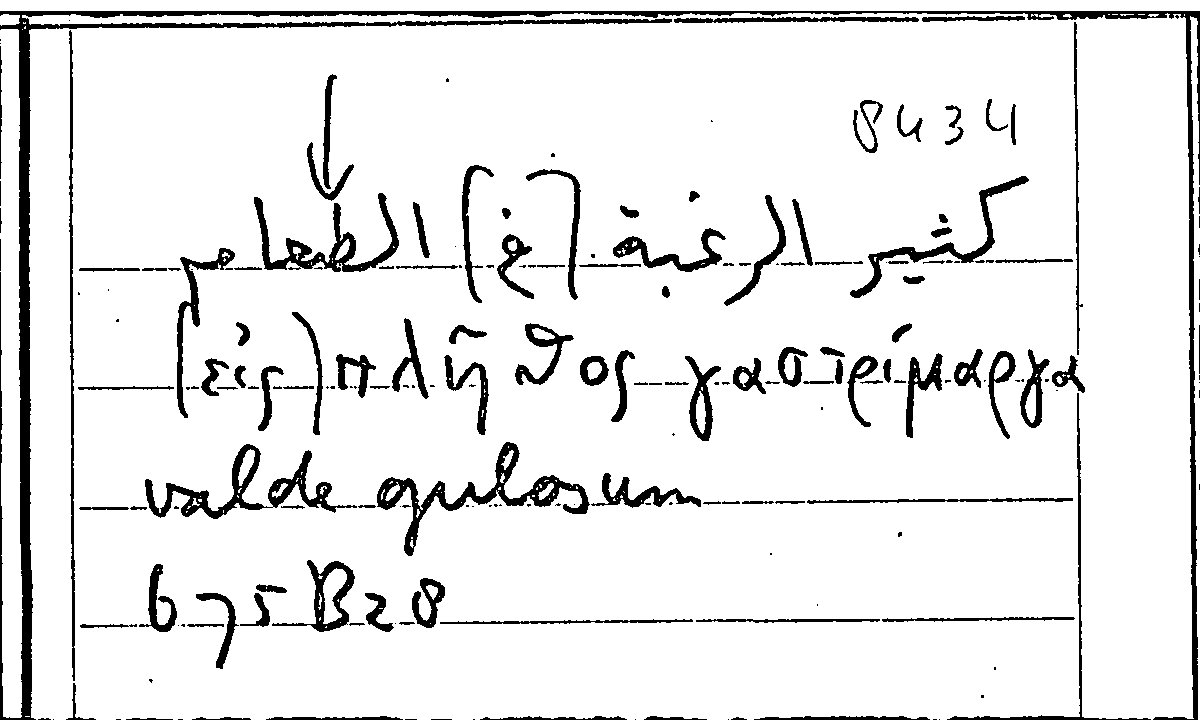 8434
كثير الرغبة (في) الطعام
(εἰς) πλῆθος γαστρίμαργα
valde gulosum
675B28